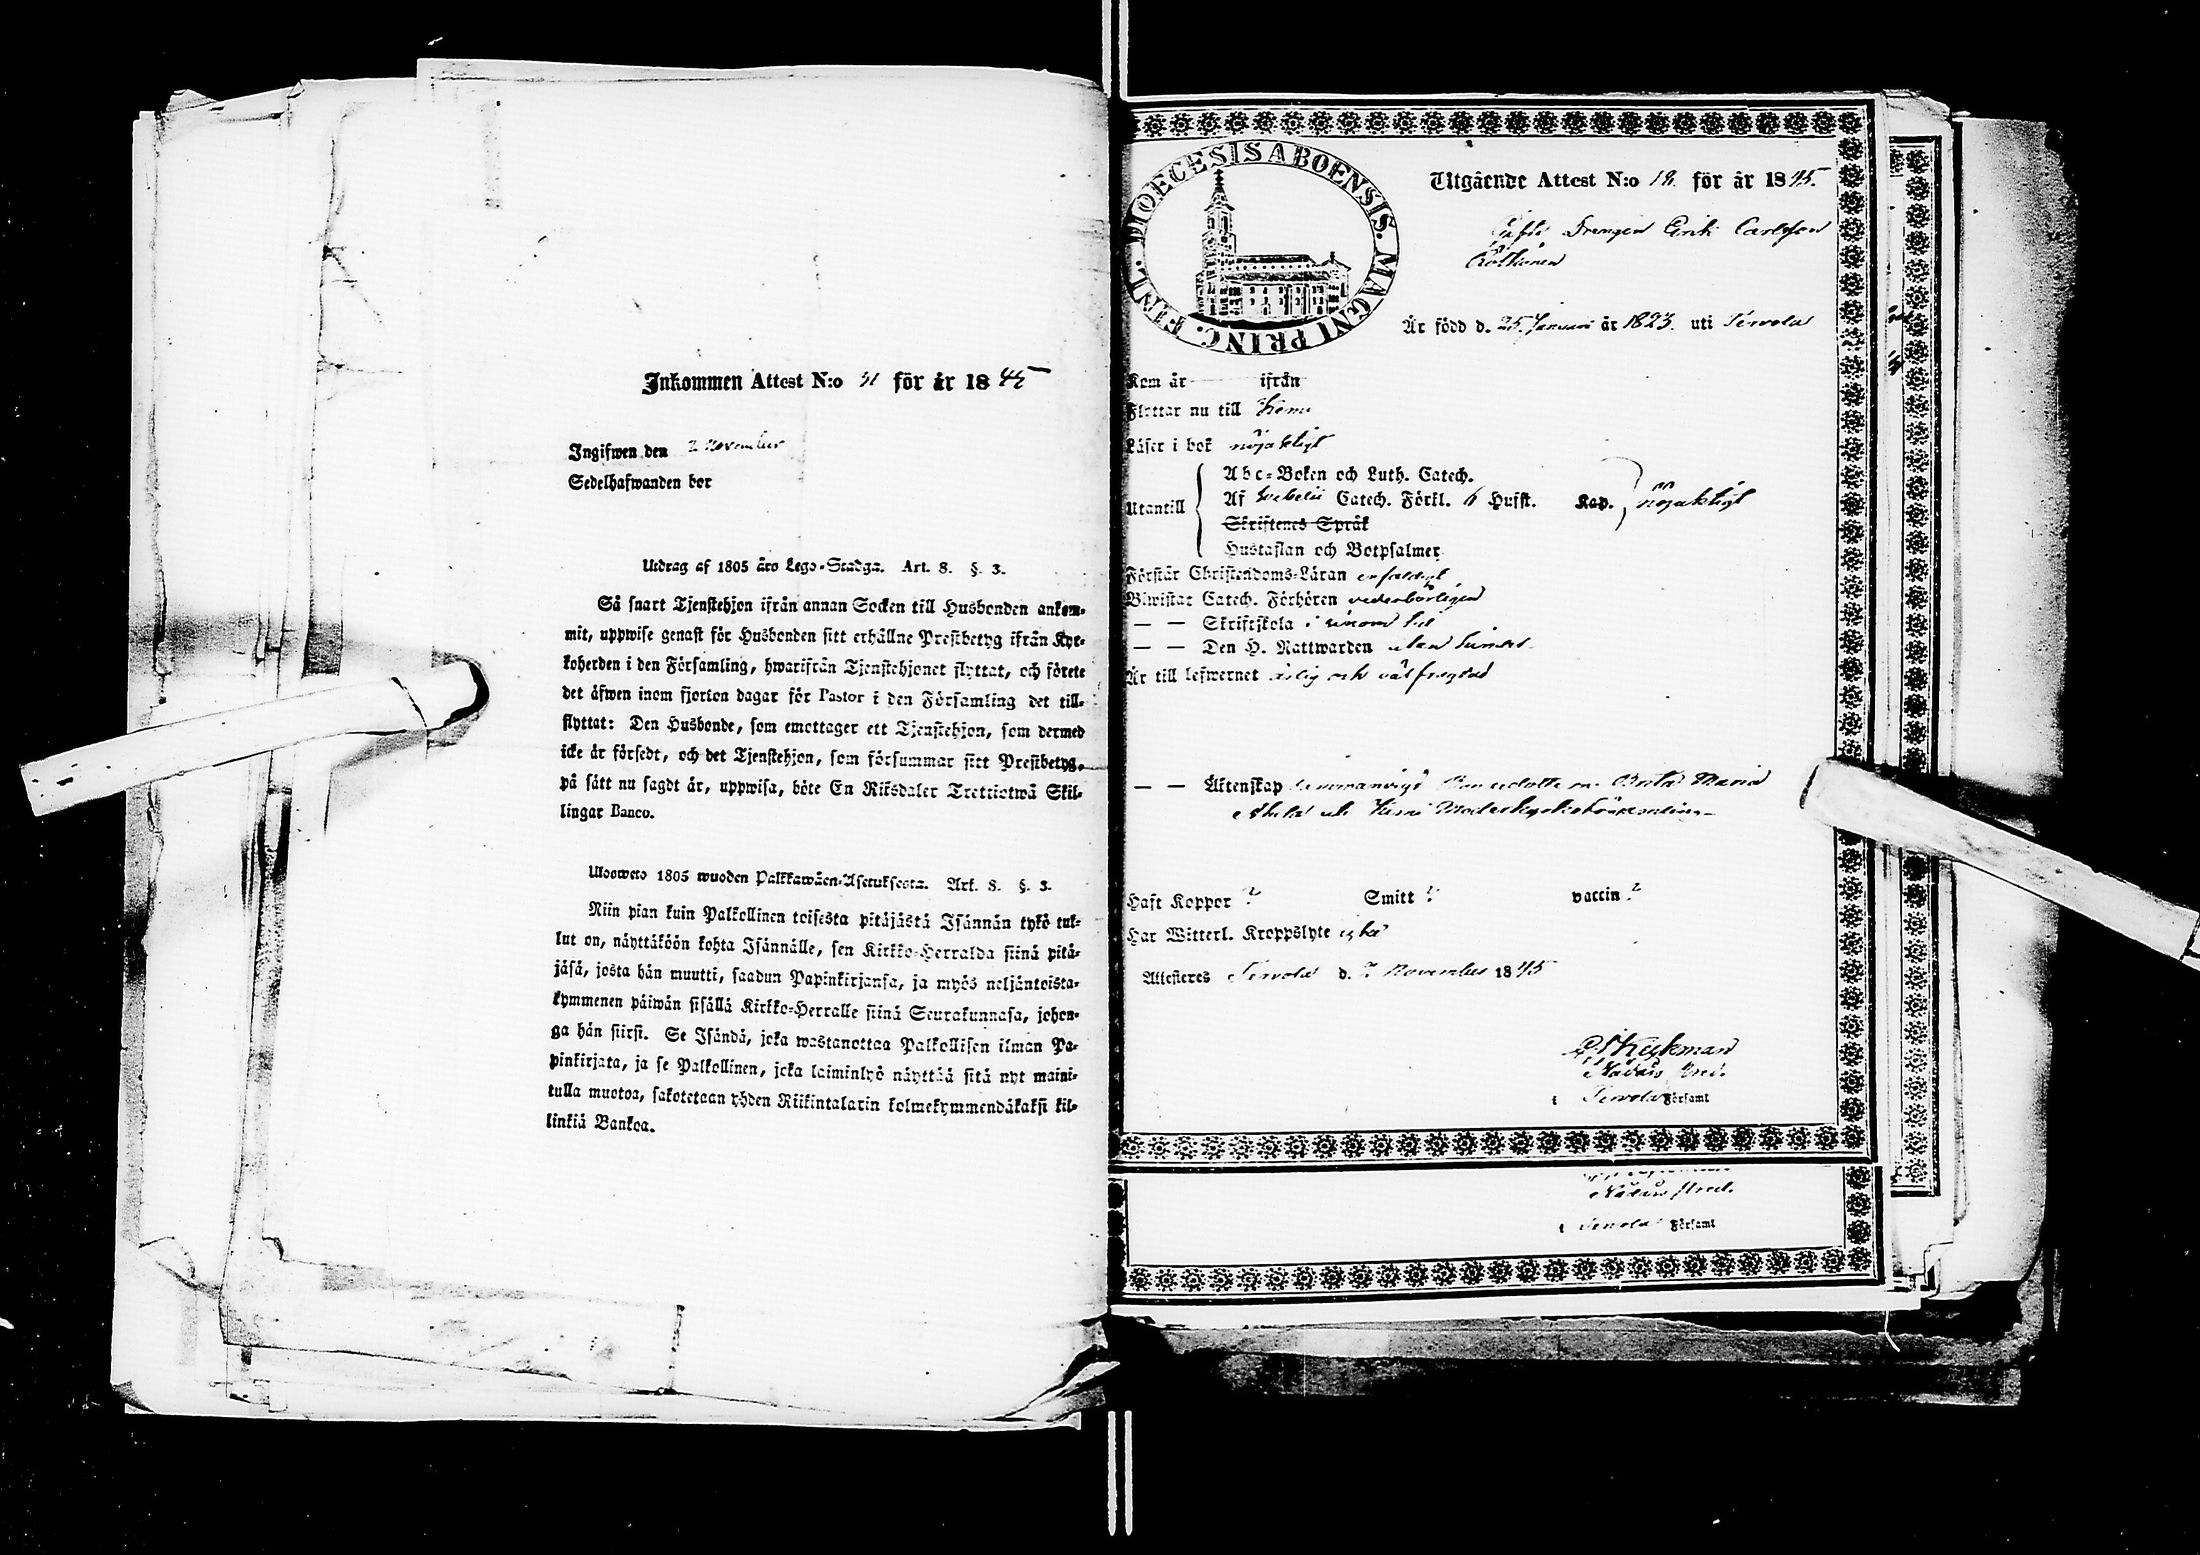 Inkommen Attest N:o 41 för år 1845
Ingifwen den 2 November
Sedelhafwanden bor
Utdrag af 1805 års Lego-Stadga. Art. 8. §. 3.
Så snart Tjenstehjon ifrån annan Socken till Husbonden ankom-
mit, uppwise genast för Husbonden sitt erhållne Prestbetyg ifrån Kyr-
koherden i den Församling, hwarifrån Tjenstehjonet flyttat, och förete
det äfwen inom fjorton dagar för Pastor i den Församling det till-
flyttat: Den Husbonde, som emottager ett Tjenstehjon, som dermed
icke är försedt, och det Tjenstehjon, som försummar sitt Prestbetyg,
på sätt nu sagdt är, uppwisa, böte En Riksdaler Trettiotwå Skil-
lingar Banco.
Ulosweto 1805 wuoden Palkkawäen-Asetuksesta. Art. 8. §. 3.
Niin pian kuin Palkollinen toisesta pitäjästä Isännän tykö tul-
lut on, näyttäköön kohta Isännälle, sen Kirkko-Herralda siinä pitä-
jäsä, josta hän muutti, saadun Papinkirjansa, ja myös neljäntoista-
kymmenen päiwän sisällä Kirkko-Herralle siinä Seurakunnasa, johon-
ga hän siirsi. Se Isändä, joka wastanottaa Palkollisen ilman Pa-
pinkirjata, ja se Palkollinen, joka laiminlyö näyttää sitä nyt maini-
tulla muotoa, sakotetaan yhden Riikintalarin kolmekymmendäkaksi kil-
linkiä Bankoa.
DIOECESIS ABOENSIS. MAGNI PRINC. FINL.
Utgående Attest N:o 18. för år 1845.
Gifte Drengen Erik Carlsson
Är född d. 25 Januari år 1823. uti Tervola
Kom år ifrån
Flyttar nu till Kemi
Läser i bok nöjaktigt
Abc-Boken och Luth. Catech.
Utantill Af Svebelii Catech. Förkl. 6 Hufst. Kap. nöjaktigt
Skriftenes Språk
Hustaflan och Botpsalmer
Förstår Christendoms-Läran enfaldigt
Biwistat Catech. Förhören vederbörligen
— — Skriftskola i sinom tid
— — Den H. Nattwarden utan hinder
Är till lefwernet ärlig och välfrägdad
— — Äktenskap sammanvigd Bondedotteren Brita Maria
uti Kemi Moderkyrkoförsamling
Haft Koppor ? Smitt ? vaccin ?
Har Witterl. Kroppslyte ej
Attesteres Tervola d. 2 November 1845
i Tervola Församl
i Tervola Församl